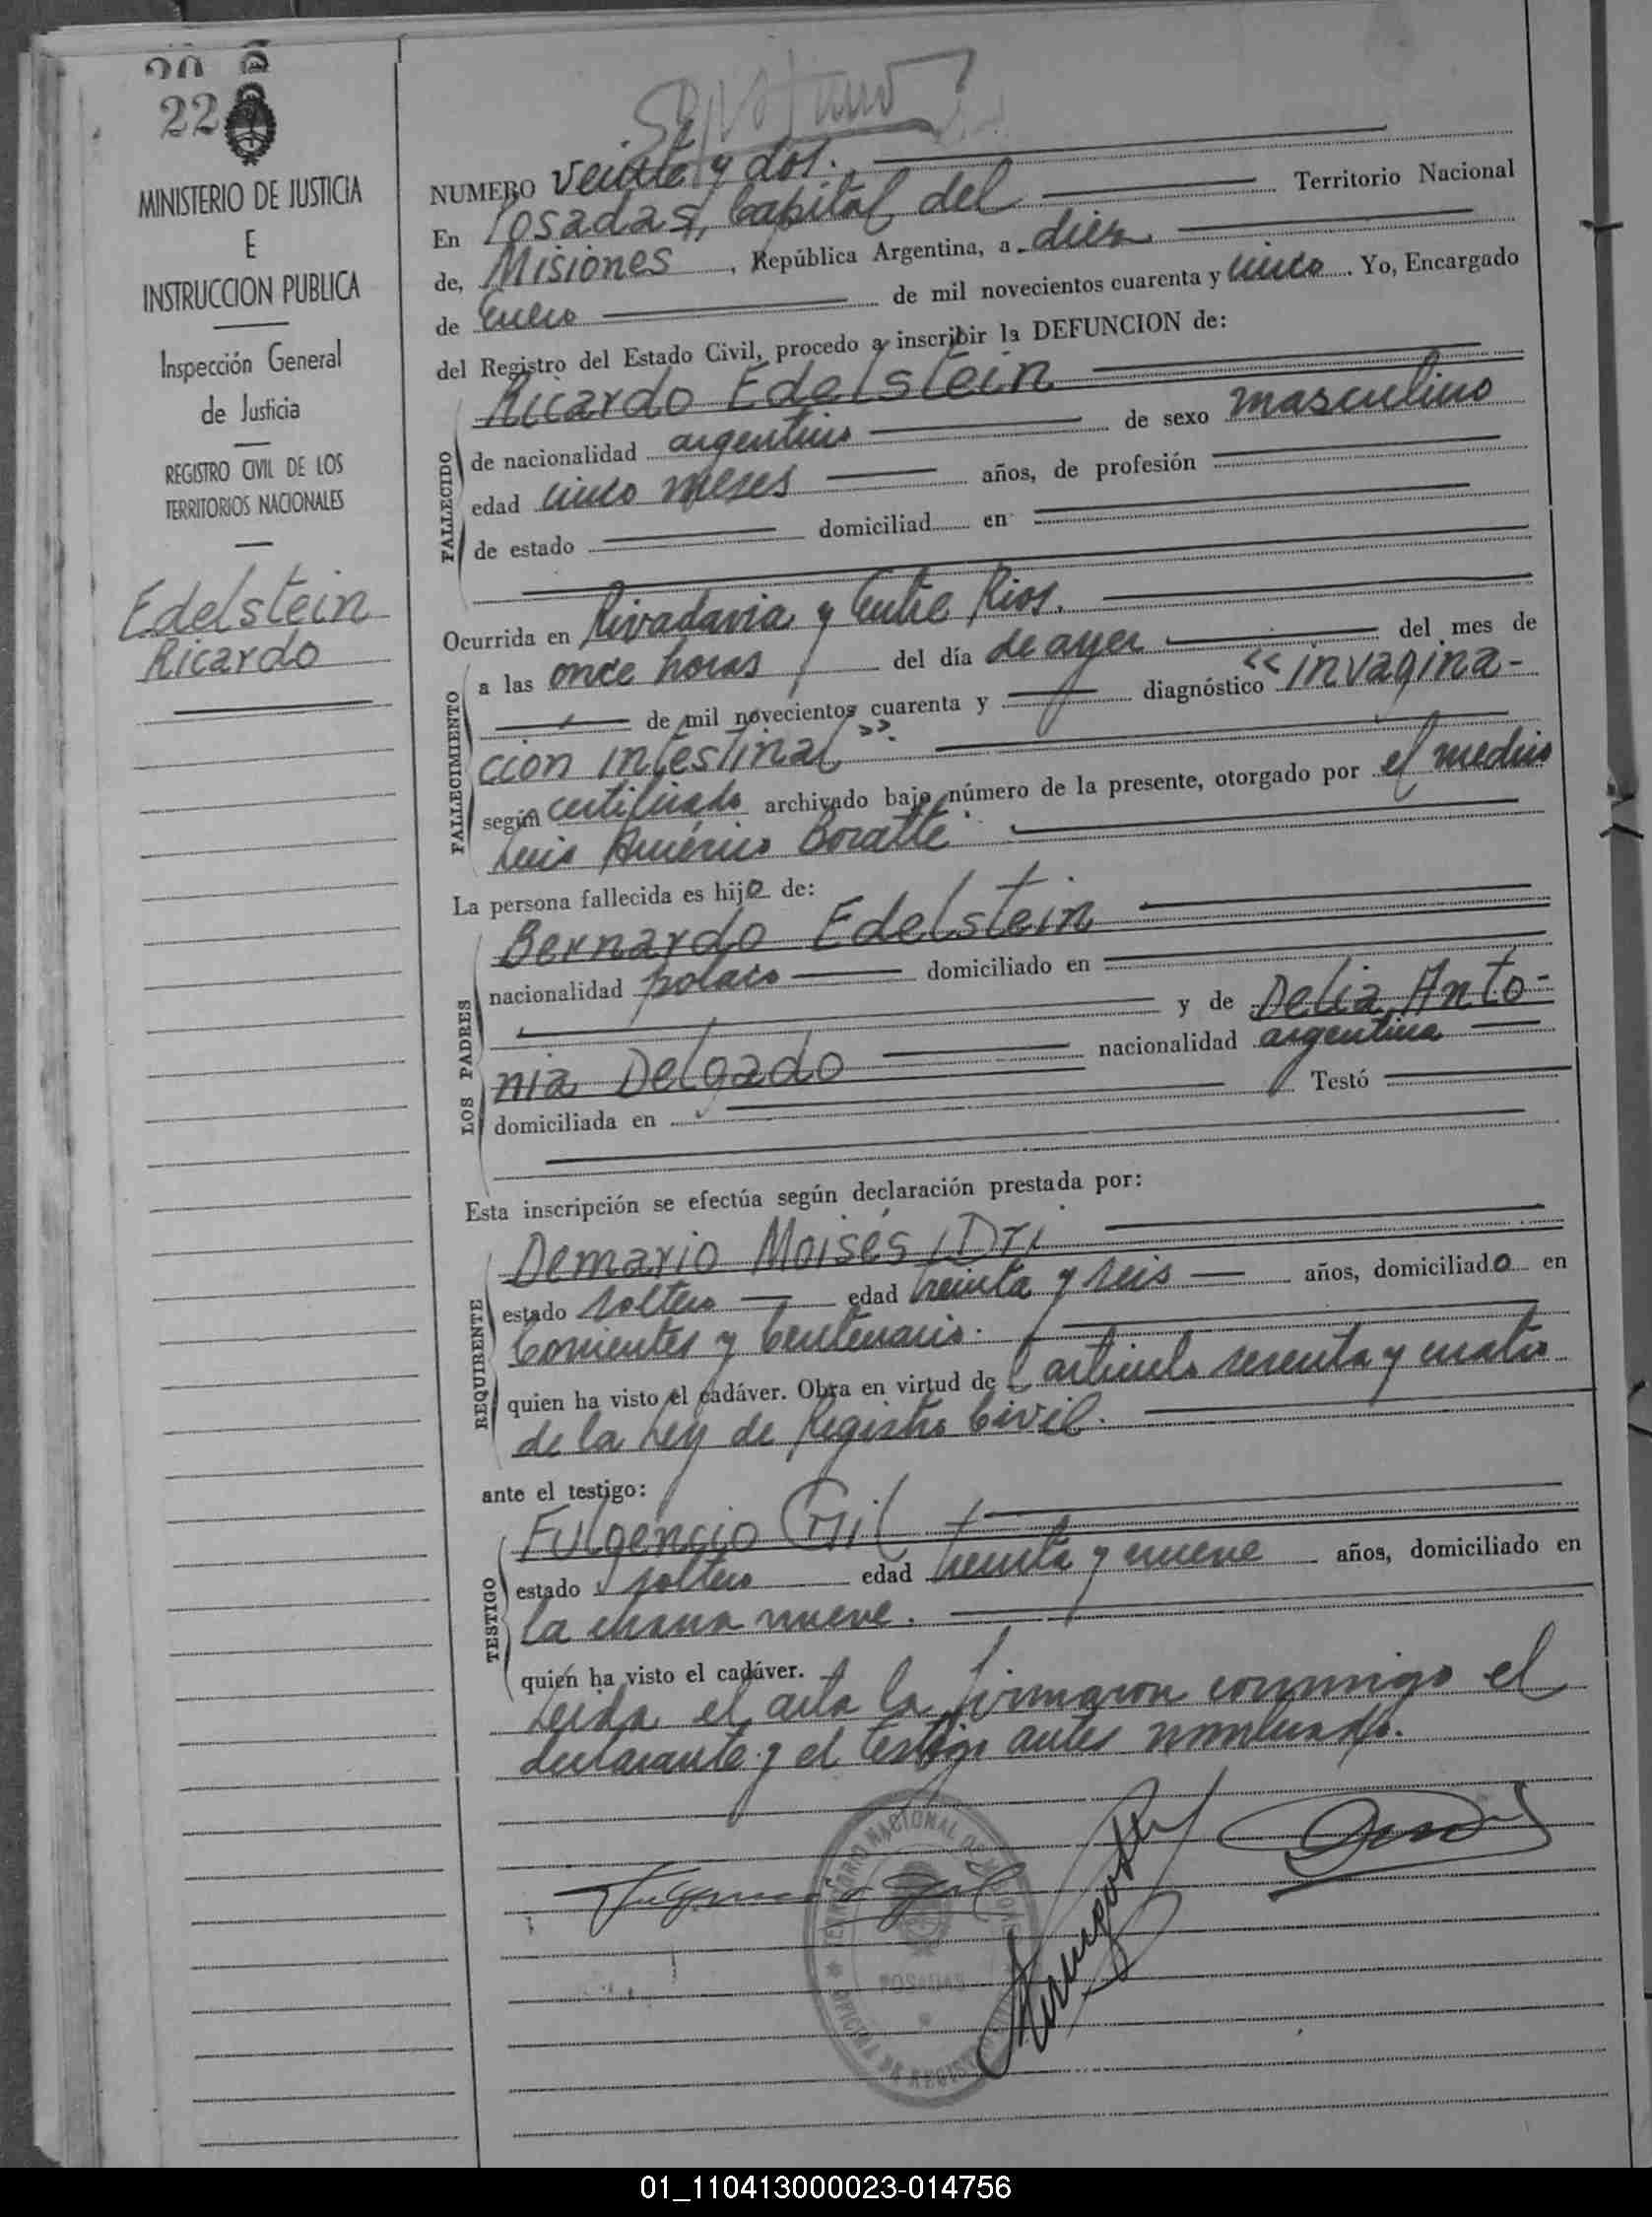 22
MINISTERIO DE JUSTICIA
E
INSTRUCCION PUBLICA
Inspección General
de Justicia
REGISTRO CIVIL DE LOS
TERRITORIOS NACIONALES
Edelstein
Ricardo
NUMERO veinte y dos.
En Posadas, Capital del Territorio Nacional
de, Misiones, República Argentina, a diez
de Enero de mil novecientos cuarenta y cinco. Yo, Encargado
del Registro del Estado Civil, procedo a inscribir la DEFUNCION de:
FALLECIDO
Ricardo Edelstein
de nacionalidad argentino de sexo masculino
edad cinco meses años, de profesión
de estado domiciliad en
Ocurrida en Rivadavia y Entre Rios.
FALLECIMIENTO
a las once horas del día de ayer del mes de
de mil novecientos cuarenta y diagnóstico «invagina-
cion intestinal».
según certificado archivado bajo número de la presente, otorgado por el medico
Luis Américo
La persona fallecida es hijo de:
LOS PADRES
Bernardo Edelstein
nacionalidad polaco domiciliado en
y de Delia Anto-
nia Delgado nacionalidad argentina
domiciliada en Testó
Esta inscripción se efectúa según declaración prestada por:
REQUIRENTE
Demario Moisés Dri
estado soltero edad treinta y seis años, domiciliado en
Corrientes y Centenario.
quien ha visto el cadáver. Obra en virtud del articulo sesenta y cuatro
de la Ley de Registro Civil.
ante el testigo:
TESTIGO
Fulgencio Gil
estado soltero edad treinta y nueve años, domiciliado en
la chacra nueve.
quien ha visto el cadáver.
Leida el acta la firmaron conmigo el
declarante y el testigo antes nombrado.
Fulgencio Gil
TERRITORIO NACIONAL DE MISIONES
POSADAS
OFICINA DE REGISTRO
01_110413000023-014756